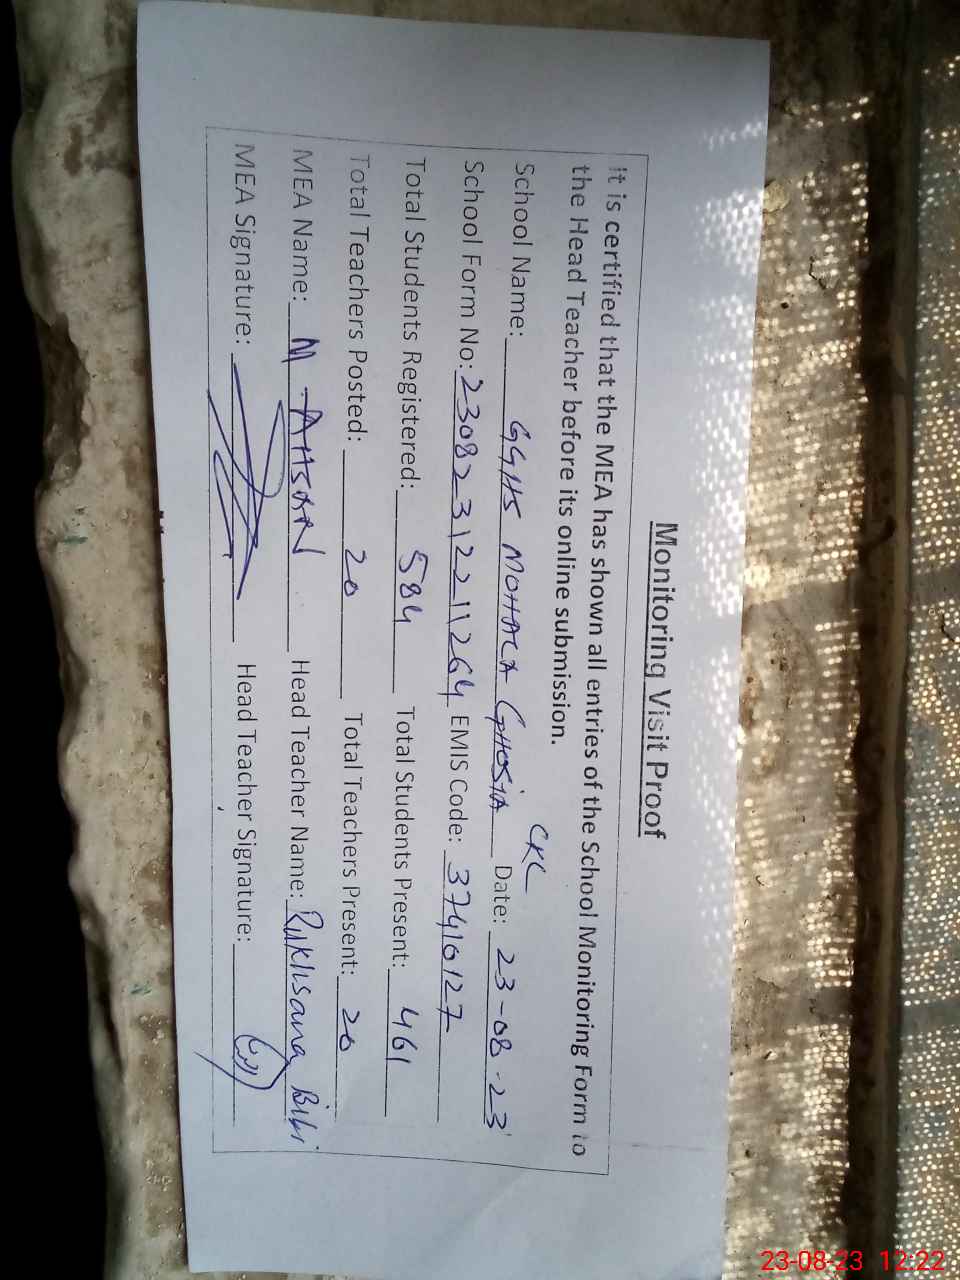 Monitoring Visit Proof
It is certified that the MEA has shown all entries of the School Monitoring Form to
the Head Teacher before its online submission.
CKL
School Name: GGHS MOHALA GHOSIA Date: 23-08-23
School Form No: 23082312211264 EMIS Code: 37410127
Total Students Registered: 584 Total Students Present: 461
Total Teachers Posted: 20 Total Teachers Present: 20
MEA Name: M. AHSAN Head Teacher Name: Rukhsana Bibi
MEA Signature: Head Teacher Signature:
23-08-23 12:22